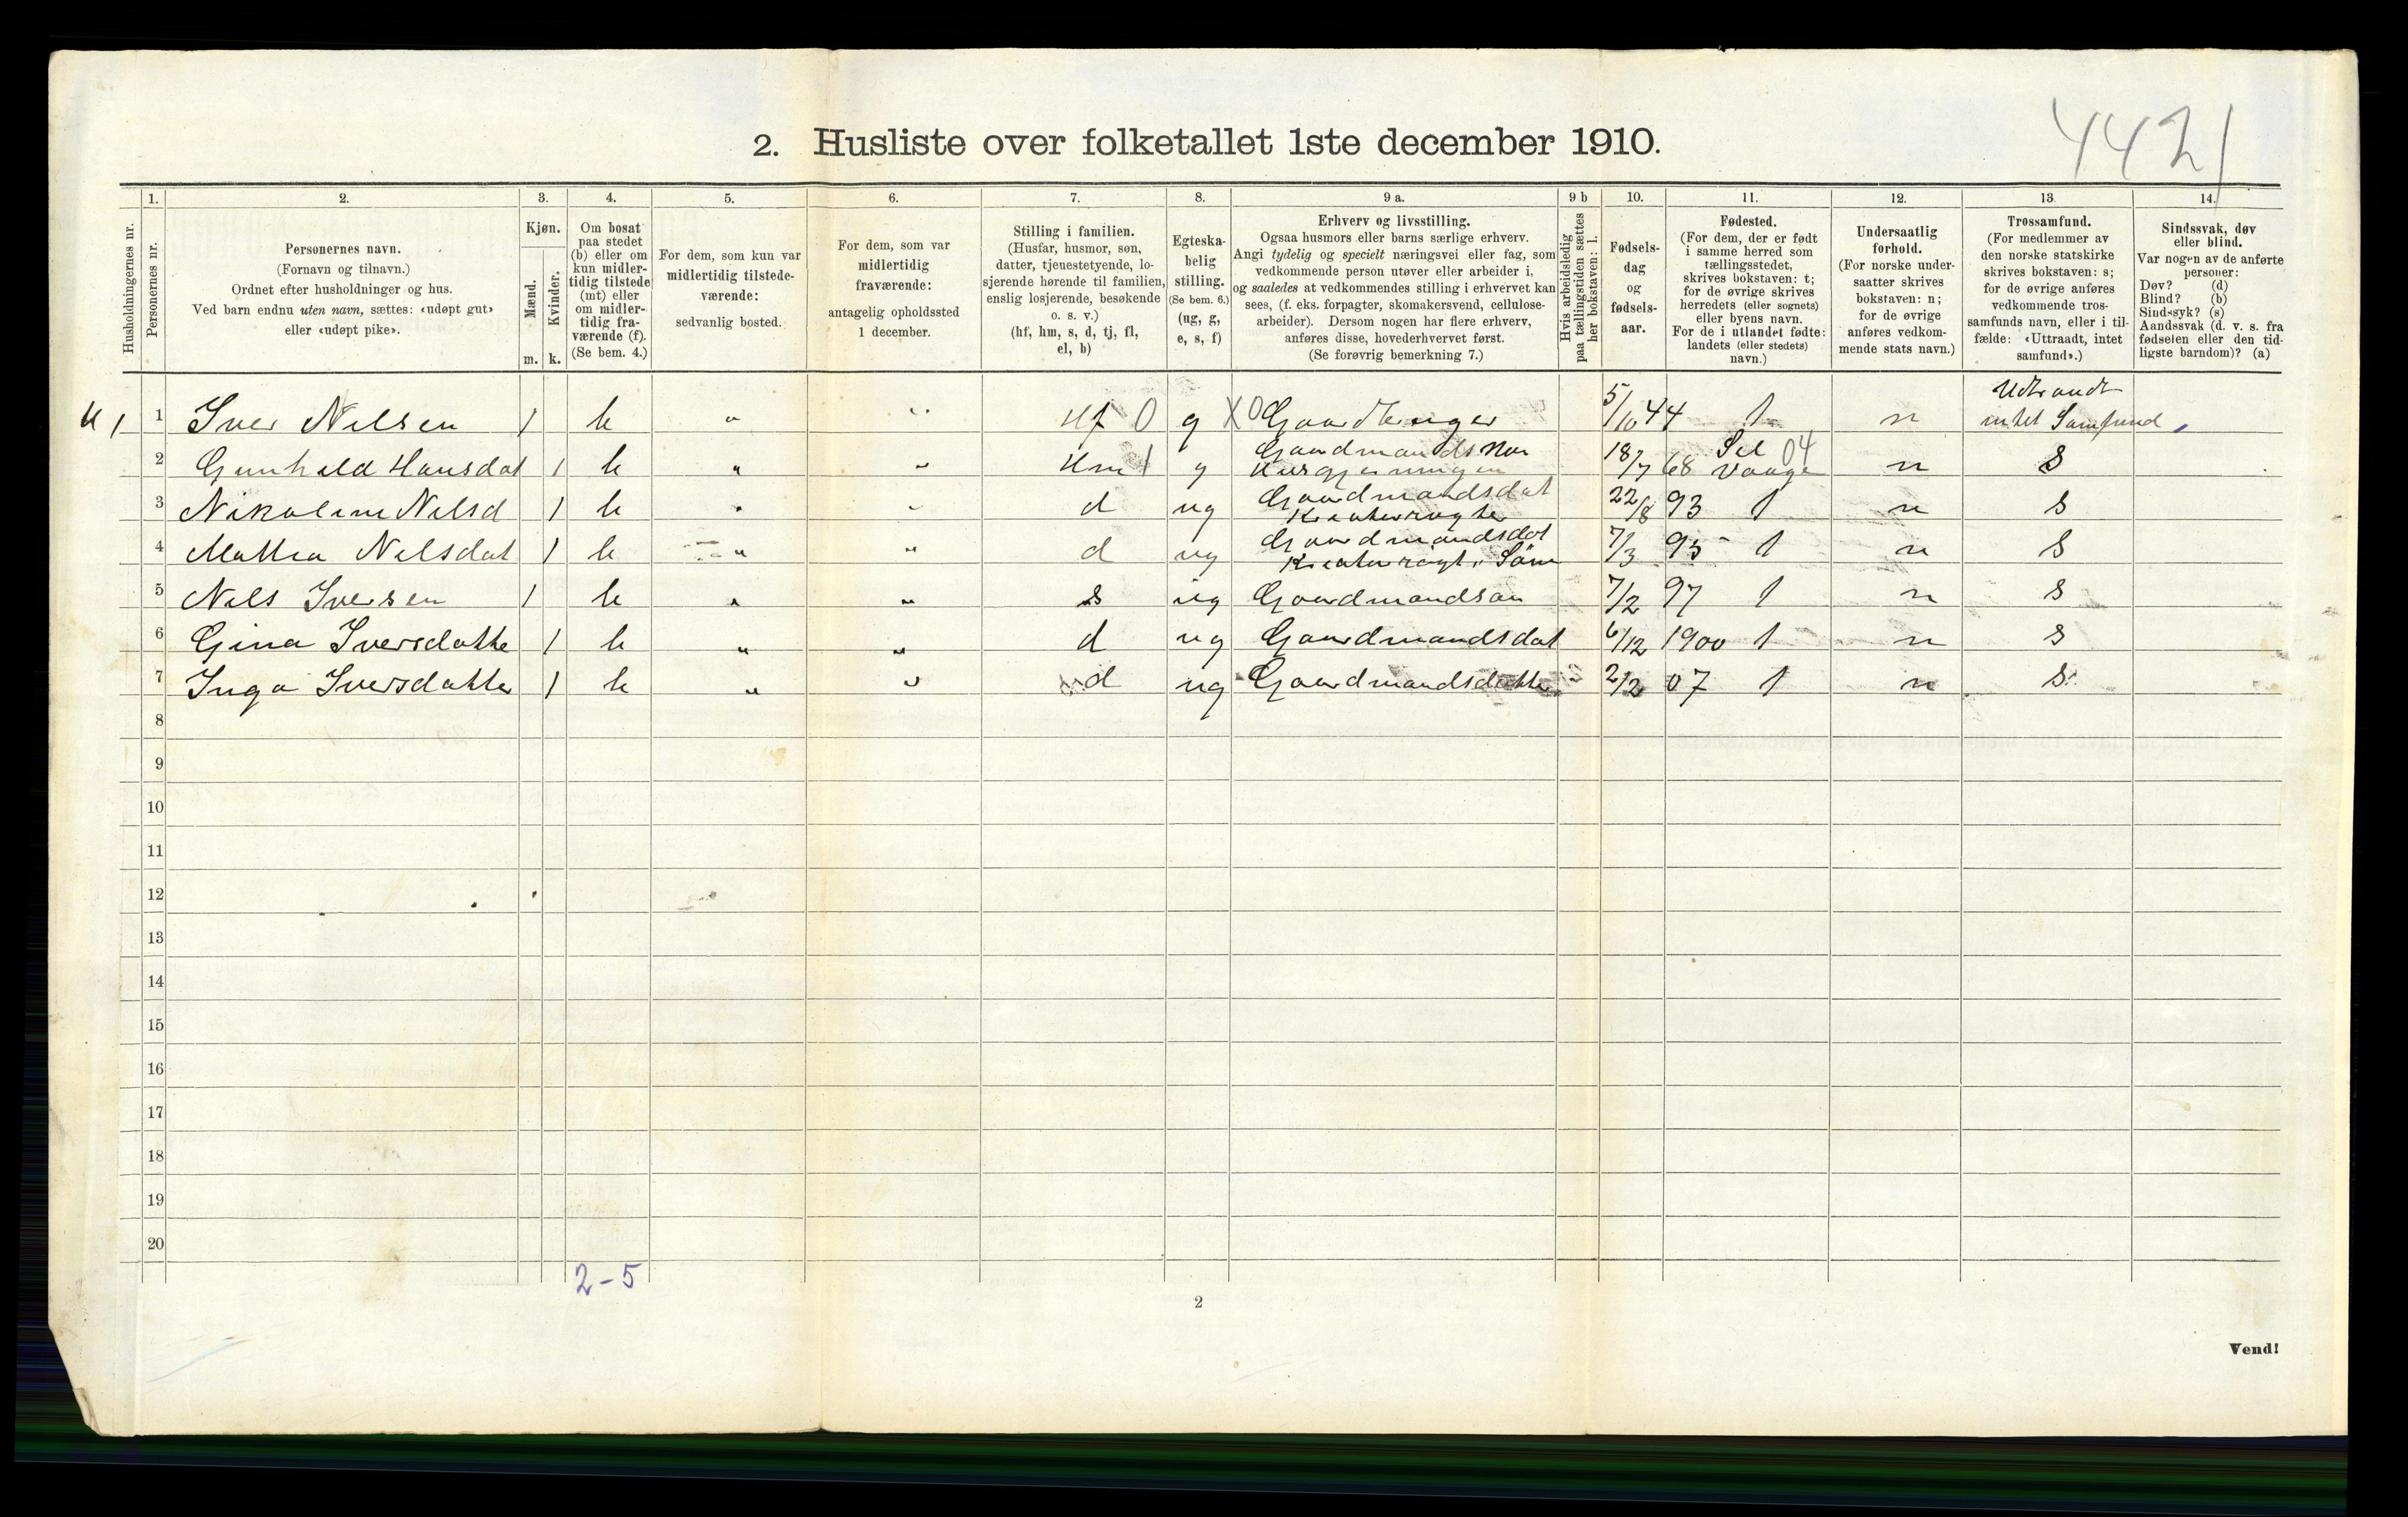 4421
2. Husliste over folketallet 1ste december 1910.
Husholdningernes nr.
1. Personernes nr.
2. Personernes navn.
(Fornavn og tilnavn.)
Ordnet efter husholdninger og hus.
Ved barn endnu uten navn, sættes: «udøpt gut»
eller «udøpt pike».
3. Kjøn.
Mænd. m.
Kvinder. k.
4. Om bosat
paa stedet
(b) eller om
kun midler-
tidig tilstede
(mt) eller
om midler-
tidig fra-
værende (f).
(Se bem. 4.)
5. For dem, som kun var
midlertidig tilstede-
værende:
sedvanlig bosted.
6. For dem, som var
midlertidig
fraværende:
antagelig opholdssted
1 december.
7. Stilling i familien.
(Husfar, husmor, søn,
datter, tjenestetyende, lo-
sjerende hørende til familien,
enslig losjerende, besøkende
o. s. v.)
(hf, hm, s, d, tj, fl,
el, b)
8. Egteska-
belig
stilling.
(Se bem. 6.)
(ug, g,
e, s, f)
9 a. Erhverv og livsstilling.
Ogsaa husmors eller barns særlige erhverv.
Angi tydelig og specielt næringsvei eller fag, som
vedkommende person utøver eller arbeider i,
og saaledes at vedkommendes stilling i erhvervet kan
sees, (f. eks. forpagter, skomakersvend, cellulose-
arbeider). Dersom nogen har flere erhverv,
anføres disse, hovederhvervet først.
(Se forøvrig bemerkning 7.)
9 b Hvis arbeidsledig
paa tællingstiden sættes
her bokstaven: l.
10. Fødsels-
dag
og
fødsels-
aar.
11. Fødested.
(For dem, der er født
i samme herred som
tællingsstedet,
skrives bokstaven: t;
for de øvrige skrives
herredets (eller sognets)
eller byens navn.
For de i utlandet fødte:
landets (eller stedets)
navn.)
12. Undersaatlig
forhold.
(For norske under-
saatter skrives
bokstaven: n;
for de øvrige
anføres vedkom-
mende stats navn.)
13. Trossamfund.
(For medlemmer av
den norske statskirke
skrives bokstaven: s;
for de øvrige anføres
vedkommende tros-
samfunds navn, eller i til-
fælde: «Uttraadt, intet
samfund».)
14. Sindssvak, døv
eller blind.
Var nogen av de anførte
personer:
Døv? (d)
Blind? (b)
Sindssyk? (s)
Aandssvak (d. v. s. fra
fødselen eller den tid-
ligste barndom)? (a)
1 Iver Nilsen 1 b " " Hf 0 g X0 Gaardbruger 5/10 44 t n Udtraadt intet Samfund
2 Gunhild Hansdat 1 b " " Hm 1 g Gaardmands Kon Husgjerningen 18/7 68 Sel Vaage 04 n S
3 Nikoline Nilsd 1 b " " d ug Gaardmandsdat Kreaturrøgter 22/8 93 t n S
4 Mathea Nilsdat 1 b " " d ug Gaardmandsdat Kreaturrøgt. Søm 7/3 95 t n S
5 Nils Iversen 1 b " " s ug Gaardmandsøn 7/2 97 t n S
6 Gina Iversdatte 1 b " " d ug Gaardmandsdat 6/12 1900 t n S
7 Inga Iversdatter 1 b " " d ug Gaardmandsdatte 2/2 07 t n S
8
9
10
11
12
13
14
15
16
17
18
19
20
2-5
2
Vend!